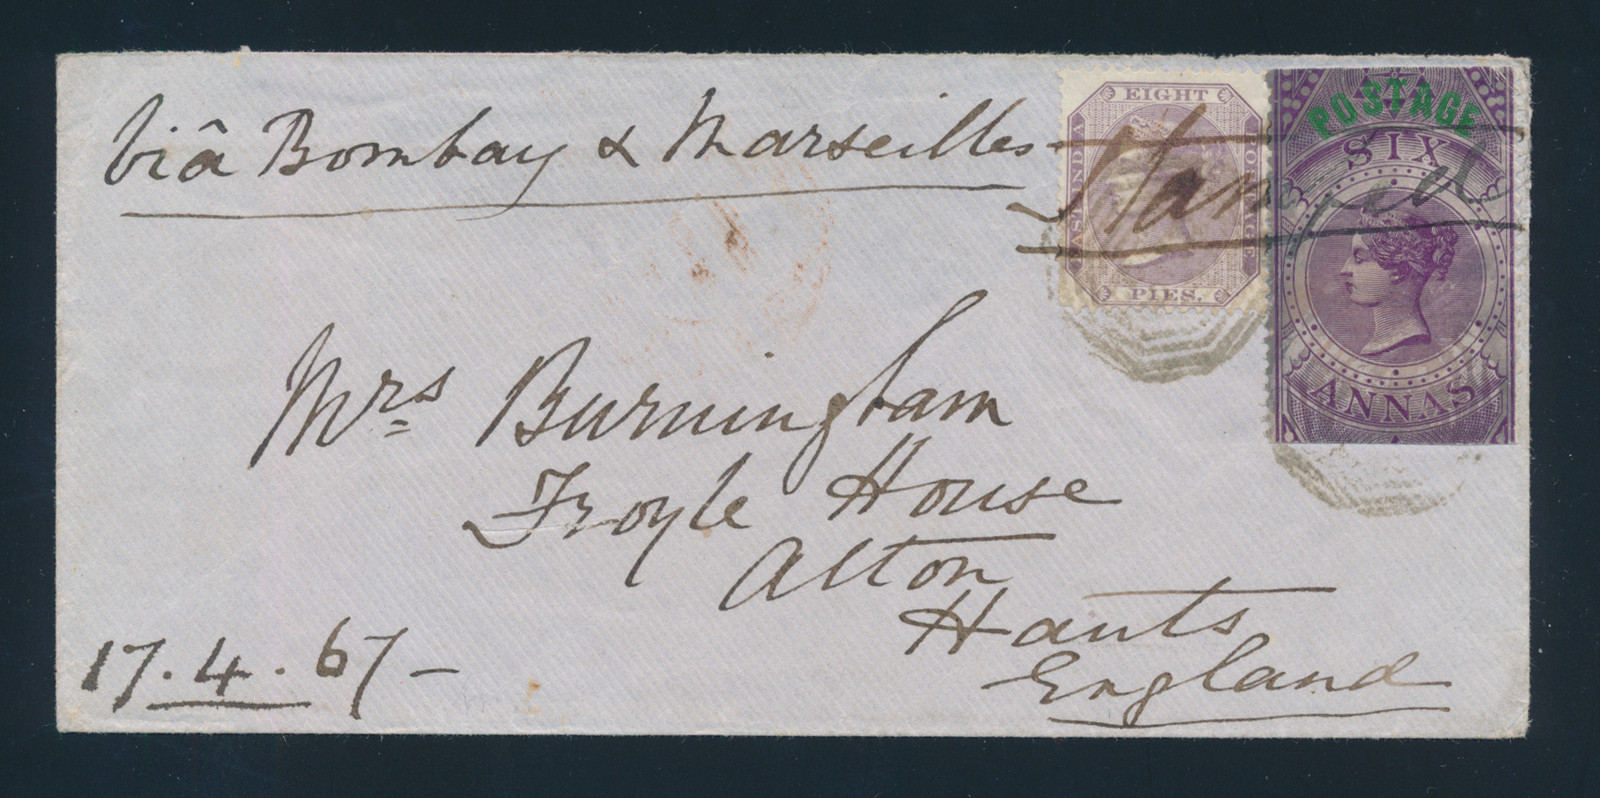 Viâ Bombay & Marseilles
Stamped
EIGHT
EAST INDIA
POSTAGE
PIES.
POSTAGE
SIX
ANNAS
Mrs Burningham
Froyle House
Alton
Hants
England
17.4.67-